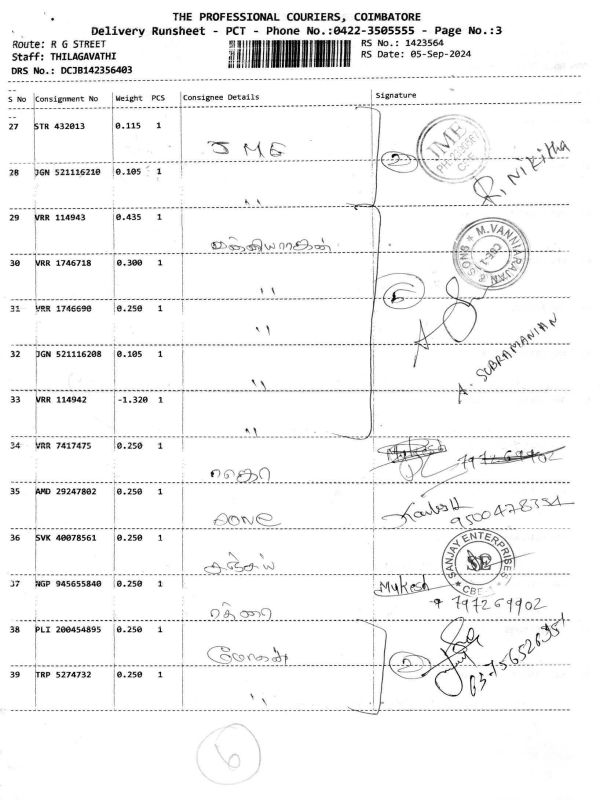 THE PROFESSIONAL COURIERS, COIMBATORE
Delivery Runsheet - PCT - Phone No.:0422-3505555 - Page No.:3
Route: R G STREET RS No.: 1423564
Staff: THILAGAVATHI RS Date: 05-Sep-2024
DRS No.: DCJB142356403
S No Consignment No Weight PCS Consignee Details Signature
27 STR 432013 0.115 1
JME
JME
CBE
28 JGN 521116210 0.105 1
R. Nikitha
" 2
29 VRR 114943 0.435 1
M.VANNIARAJAN & SONS
CBE-1
வன்னியராஜன்
30 VRR 1746718 0.300 1
" 5
31 VRR 1746690 0.250 1
"
32 JGN 521116208 0.105 1
A. SUBRAMANIAN
"
33 VRR 114942 -1.320 1
"
34 VRR 7417475 0.250 1
Mykesh
797269902
35 AMD 29247802 0.250 1
9500478354
36 SVK 40078561 0.250 1
SANJAY ENTERPRISES
SE
CBE-1
சஞ்சய்
37 NGP 945655840 0.250 1
Mykesh
797269902
38 PLI 200454895 0.250 1
2
39 TRP 5274732 0.250 1
"
6